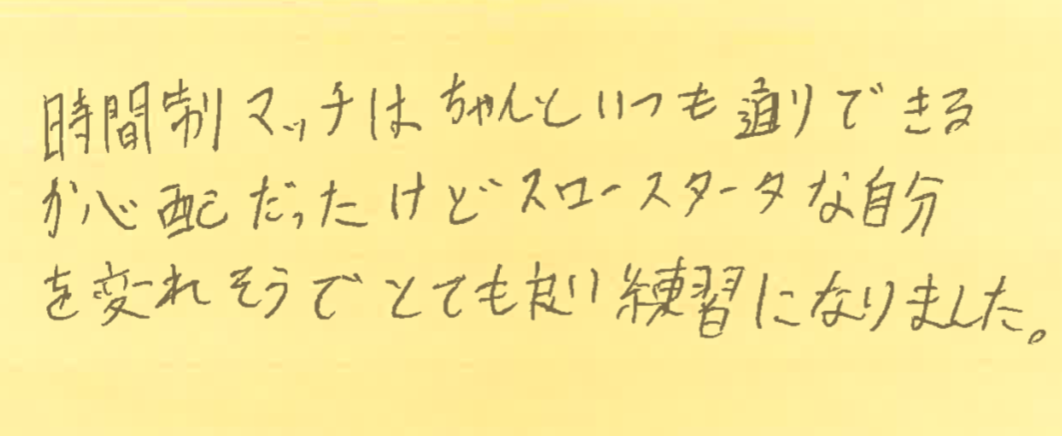 時間制マッチはちゃんといつも通りできる
か心配だったけどスロースタータな自分
を変れそうでとても良い練習になりました。